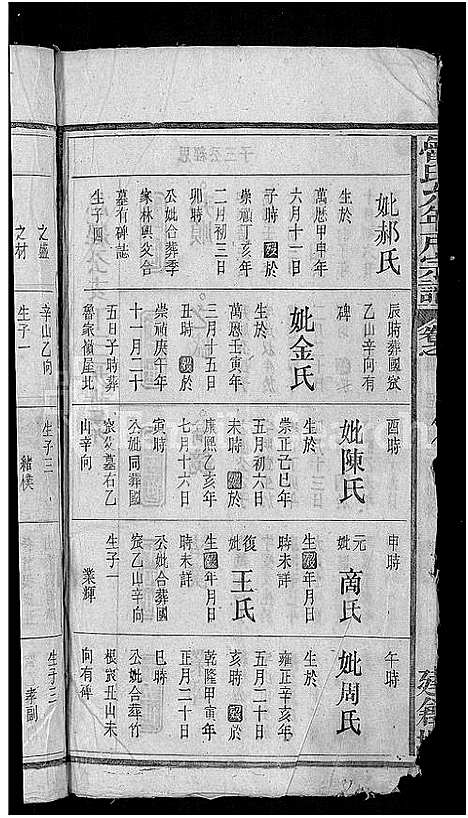 曾氏
宗譜
卷之
建
子三公經思
妣郝氏
生於
萬歷甲申年
六月十一日
子時歿於
崇禎丁亥年
二月初三日
卯時
公妣合葬季
家林與父合
墓有碑誌
生子四
之盛
之材
辰時葬國宬
乙山辛向有
碑
妣金氏
生於
萬歷壬寅年
三月十五日
丑時歿於
崇禎庚午年
十一月二十
五日子時葬
魯家嶺屋北
辛山乙向
生子一
酉時
妣陳氏
生於
崇正己巳年
五月初六日
未時歿於
康熙乙亥年
七月十六日
寅時
公妣同葬國
宬公墓右乙
山辛向
生子三
緒樸
申時
元妣商氏
生歿年月日
時未詳
復妣王氏
生歿年月日
時未詳
公妣合葬國
宬乙山辛向
生子一
業輝
午時
妣周氏
生於
雍正辛亥年
五月二十日
亥時歿於
乾隆甲寅年
正月二十日
巳時
公妣合葬竹
根宬丑山未
向有碑
生子三
孝嗣